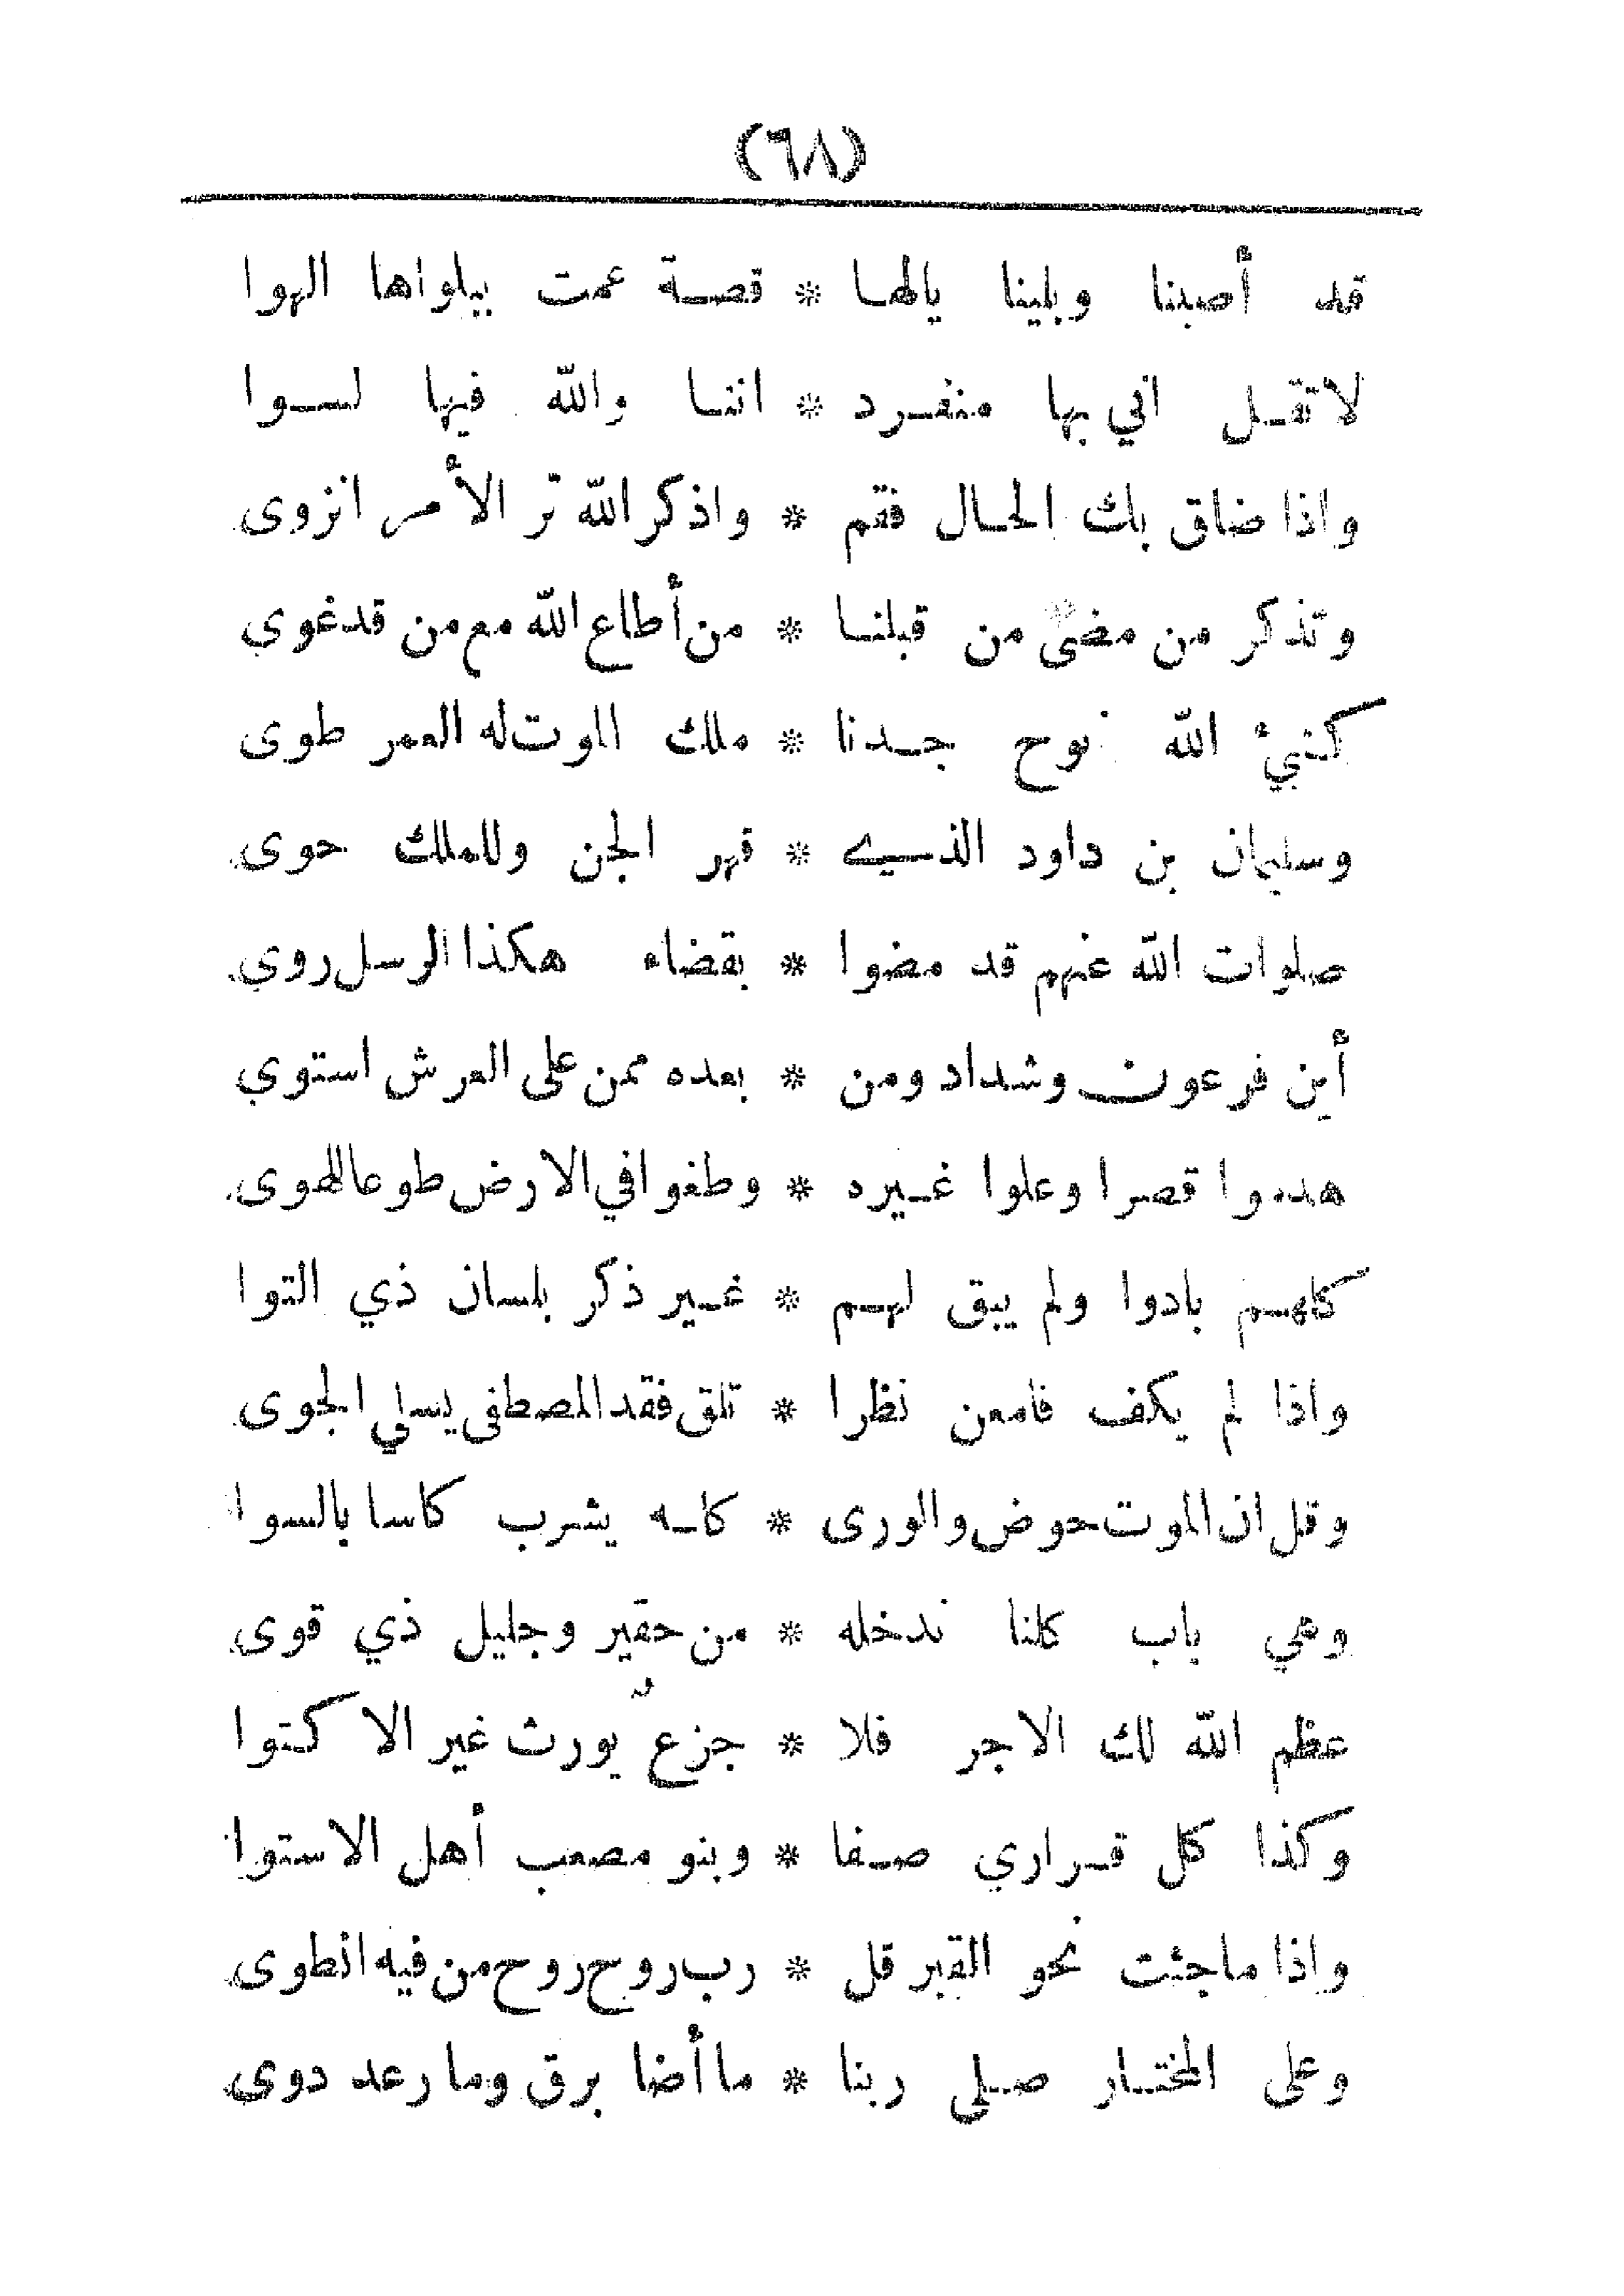 (٦٨)
قد أصبنا وبلينا يالها * قصة عمت ببلواها الهوا
لا تقل اني بها منفرد * اننا والله فيها لسوا
واذا ضاق بك الحال فقم * واذكر الله تر الأمر انزوى
وتذكر من مضى من قبلنا * من أطاع الله مع من قد غوي
كنبيّ الله نوح جدنا * ملك الموت له العمر طوى
وسليمان بن داود الذي * قهر الجن وللملك حوى
صلوات الله عنهم قد مضوا * بقضاء هكذا الرسل روي
أين فرعون وشداد ومن * بعده ممن على العرش استوي
هدموا قصرا وعلوا غيره * وطغوا في الارض طوعا للهوى
كلهم بادوا ولم يبق لهم * غير ذكر بلسان ذي التوا
واذا لم يكف فامعن نظرا * تلق فقد المصطفى يسلي الجوى
وقل ان الموت حوض والورى * كله يشرب كاسا بالسوا
وهي باب كلنا ندخله * من حقير وجليل ذي قوى
عظم الله لك الاجر فلا * جزعٌ يورث غير الاكتوا
وكذا كل قراري صفا * وبنو مصعب أهل الاستوا
واذا ما جئت نحو القبر قل * رب روح روح من فيه انطوى
وعلى المختار صلى ربنا * ما أضا برق وما رعد دوى